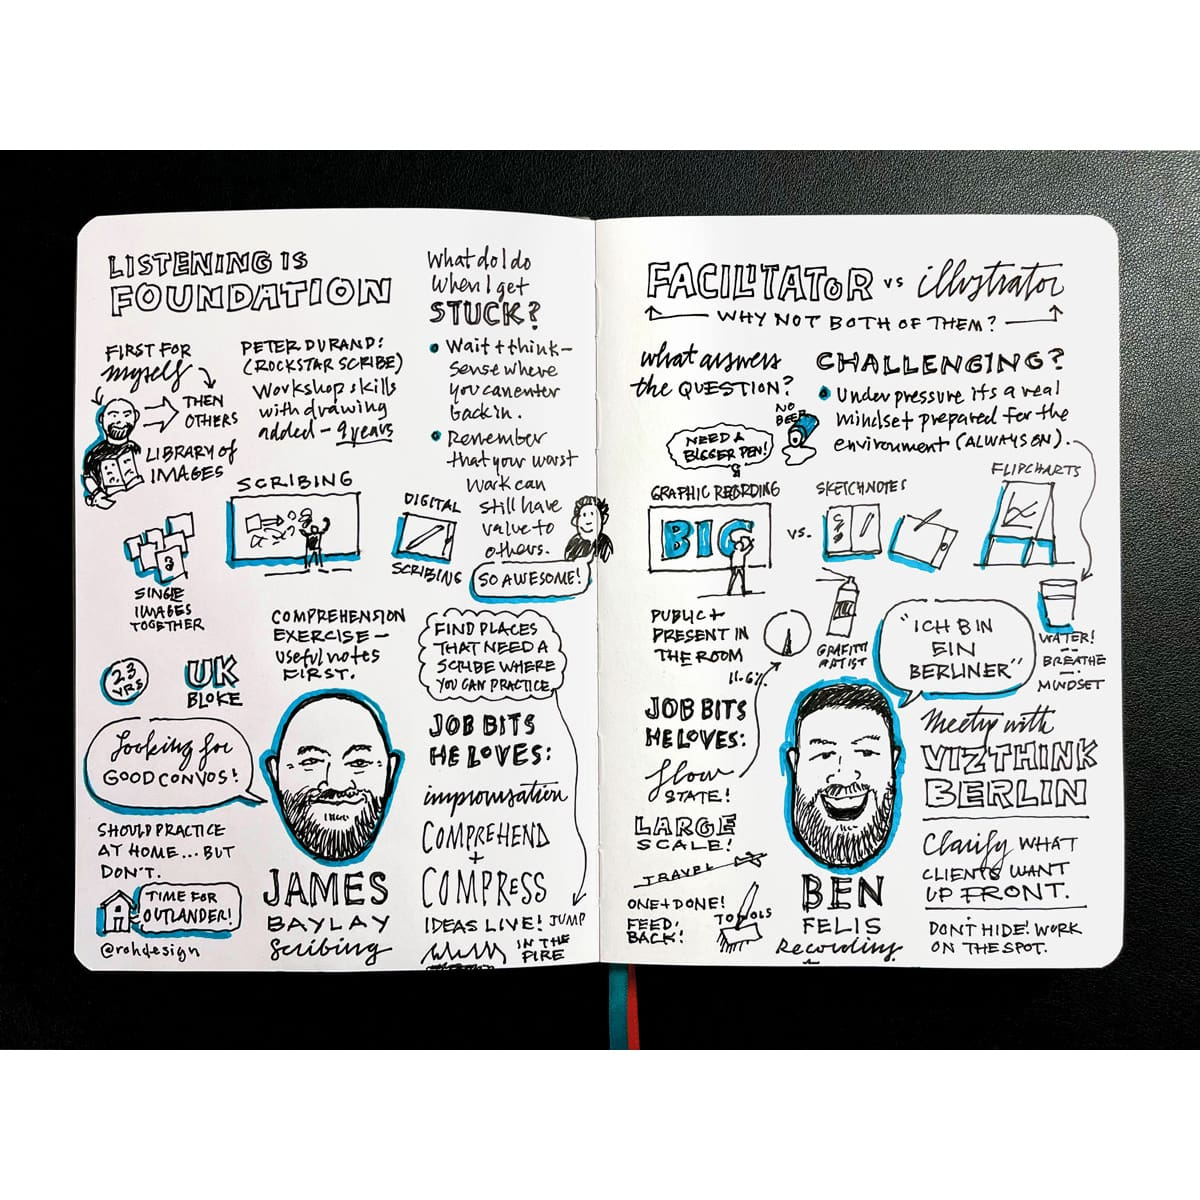 LISTENING IS
FOUNDATION
FIRST FOR
myself
THEN
OTHERS
LIBRARY of
IMAGES
PETER DURAND:
(ROCKSTAR SCRIBE)
Workshop skills
with drawing
added – 9 years
SCRIBING
DIGITAL
SCRIBING
SINGLE
IMAGES
TOGETHER
COMPREHENSION
EXERCISE –
useful notes
FIRST.
2.3
YRS
UK
BLOKE
Looking for
GOOD CONVOS!
SHOULD PRACTICE
AT HOME... BUT
DON'T.
TIME FOR
OUTLANDER!
@rohdesign
JAMES
BAYLAY
Scribing
What do I do
When I get
STUCK?
Wait + think –
sense where
you can enter
back in.
Remember
that your worst
work can
still have
value to
others.
SO AWESOME!
FIND PLACES
THAT NEED A
SCRIBE WHERE
YOU CAN PRACTICE
JOB BITS
HE LOVES:
improvisation
COMPREHEND
+
COMPRESS
IDEAS LIVE!
JUMP
IN THE
FIRE
FACILITATOR vs illustrator
WHY NOT BOTH OF THEM?
what answers
the QUESTION?
NO
BEER
NEED A
BIGGER PEN!
GRAPHIC RECORDING
BIG
vs.
SKETCHNOTES
CHALLENGING?
Under pressure its a real
mindset prepared for the
environment (ALWAYS ON).
FLIPCHARTS
PUBLIC +
PRESENT IN
THE ROOM
11.6%
GRAFITTI
ARTIST
"ICH BIN
EIN
BERLINER"
WATER!
BREATHE
MINDSET
JOB BITS
HE LOVES:
flow
STATE!
LARGE
SCALE!
TRAVEL
ONE + DONE!
FEED.
BACK!
TOOLS
BEN
FELIS
Recording
Meetup with
VIZTHINK
BERLIN
Clarify WHAT
CLIENTS WANT
UP FRONT.
DON'T HIDE! WORK
ON THE SPOT.